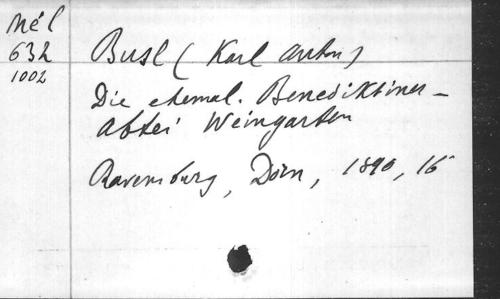 Mél
632
1002
Busl (Karl Anton)
Die ehemal. Benediktiner-
Abtei Weingarten
Ravensburg, Dorn, 1890, 16